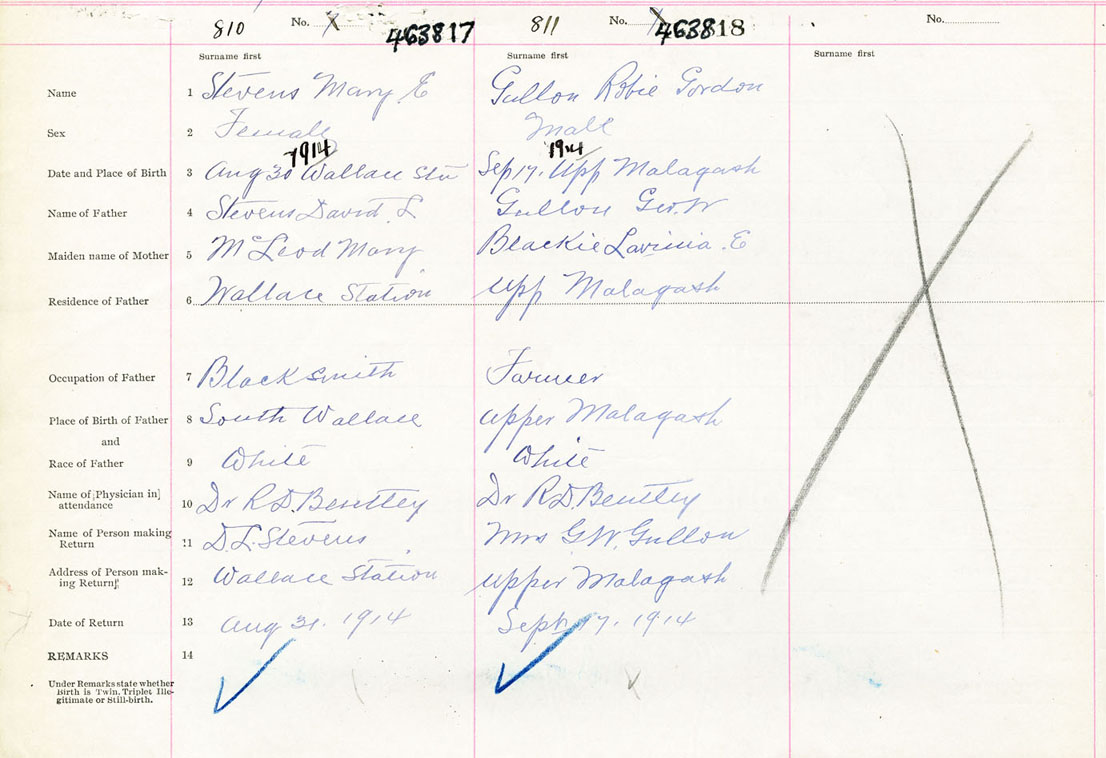 810 No. 463817 811 No. 463818 No.
Surname first Surname first Surname first
Name 1 Stevens Mary E Gullon Robie Gordon
Sex 2 Female Male
1914 1914
Date and Place of Birth 3 Aug 30 Wallace Sta Sep 17. Upp Malagash
Name of Father 4 Stevens David L Gullon Geo. W
Maiden name of Mother 5 McLeod Mary Blackie Lavinia. E
Residence of Father 6 Wallace Station Upp Malagash
Occupation of Father 7 Blacksmith Farmer
Place of Birth of Father 8 South Wallace Upper Malagash
and
Race of Father 9 White White
Name of [Physician in]
attendance 10 Dr R. D. Benttey Dr R. D. Benttey
Name of Person making
Return 11 D. L. Stevens Mrs G. W. Gullon
Address of Person mak-
ing Return 12 Wallace Station Upper Malagash
Date of Return 13 Aug 31. 1914 Sept 17. 1914
REMARKS 14
Under Remarks state whether
Birth is Twin, Triplet Ille-
gitimate or Still-birth.